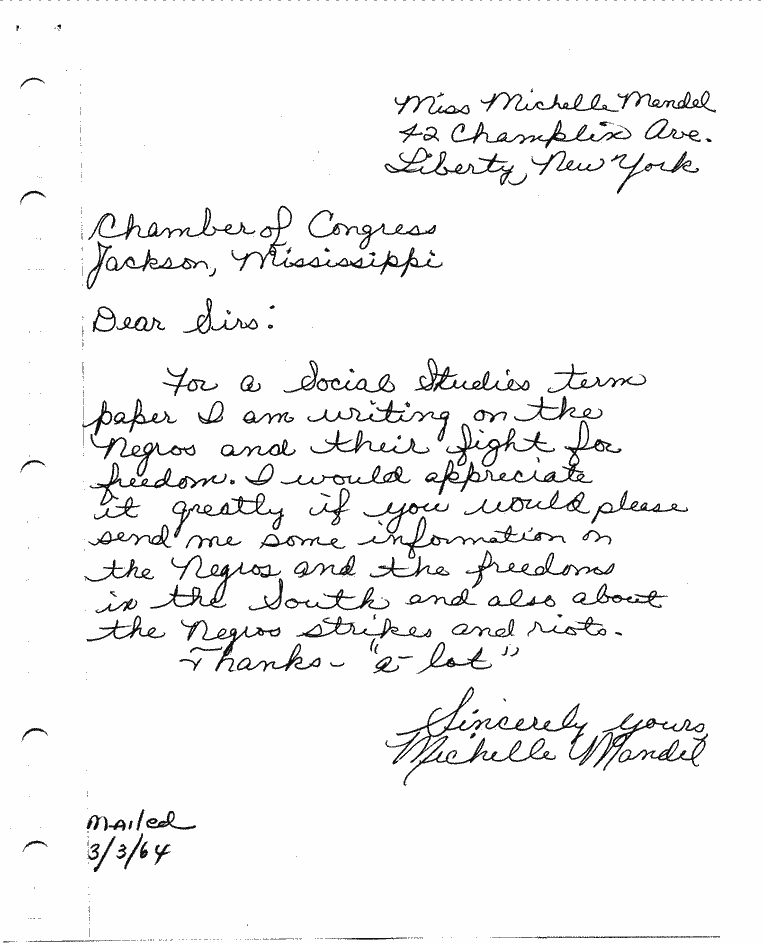 Miss Michelle Mandel
42 Champlin Ave.
Liberty, New York
Chamber of Congress
Jackson, Mississippi
Dear Sirs:
For a Social Studies term
paper I am writing on the
Negros and their fight for
freedom. I would appreciate
it greatly if you would please
send me some information on
the Negros, and the freedoms
in the South and also about
the Negros strikes and riots.
Thanks - "a-lot"
Sincerely yours,
Michelle Mandel
Mailed
3/3/64